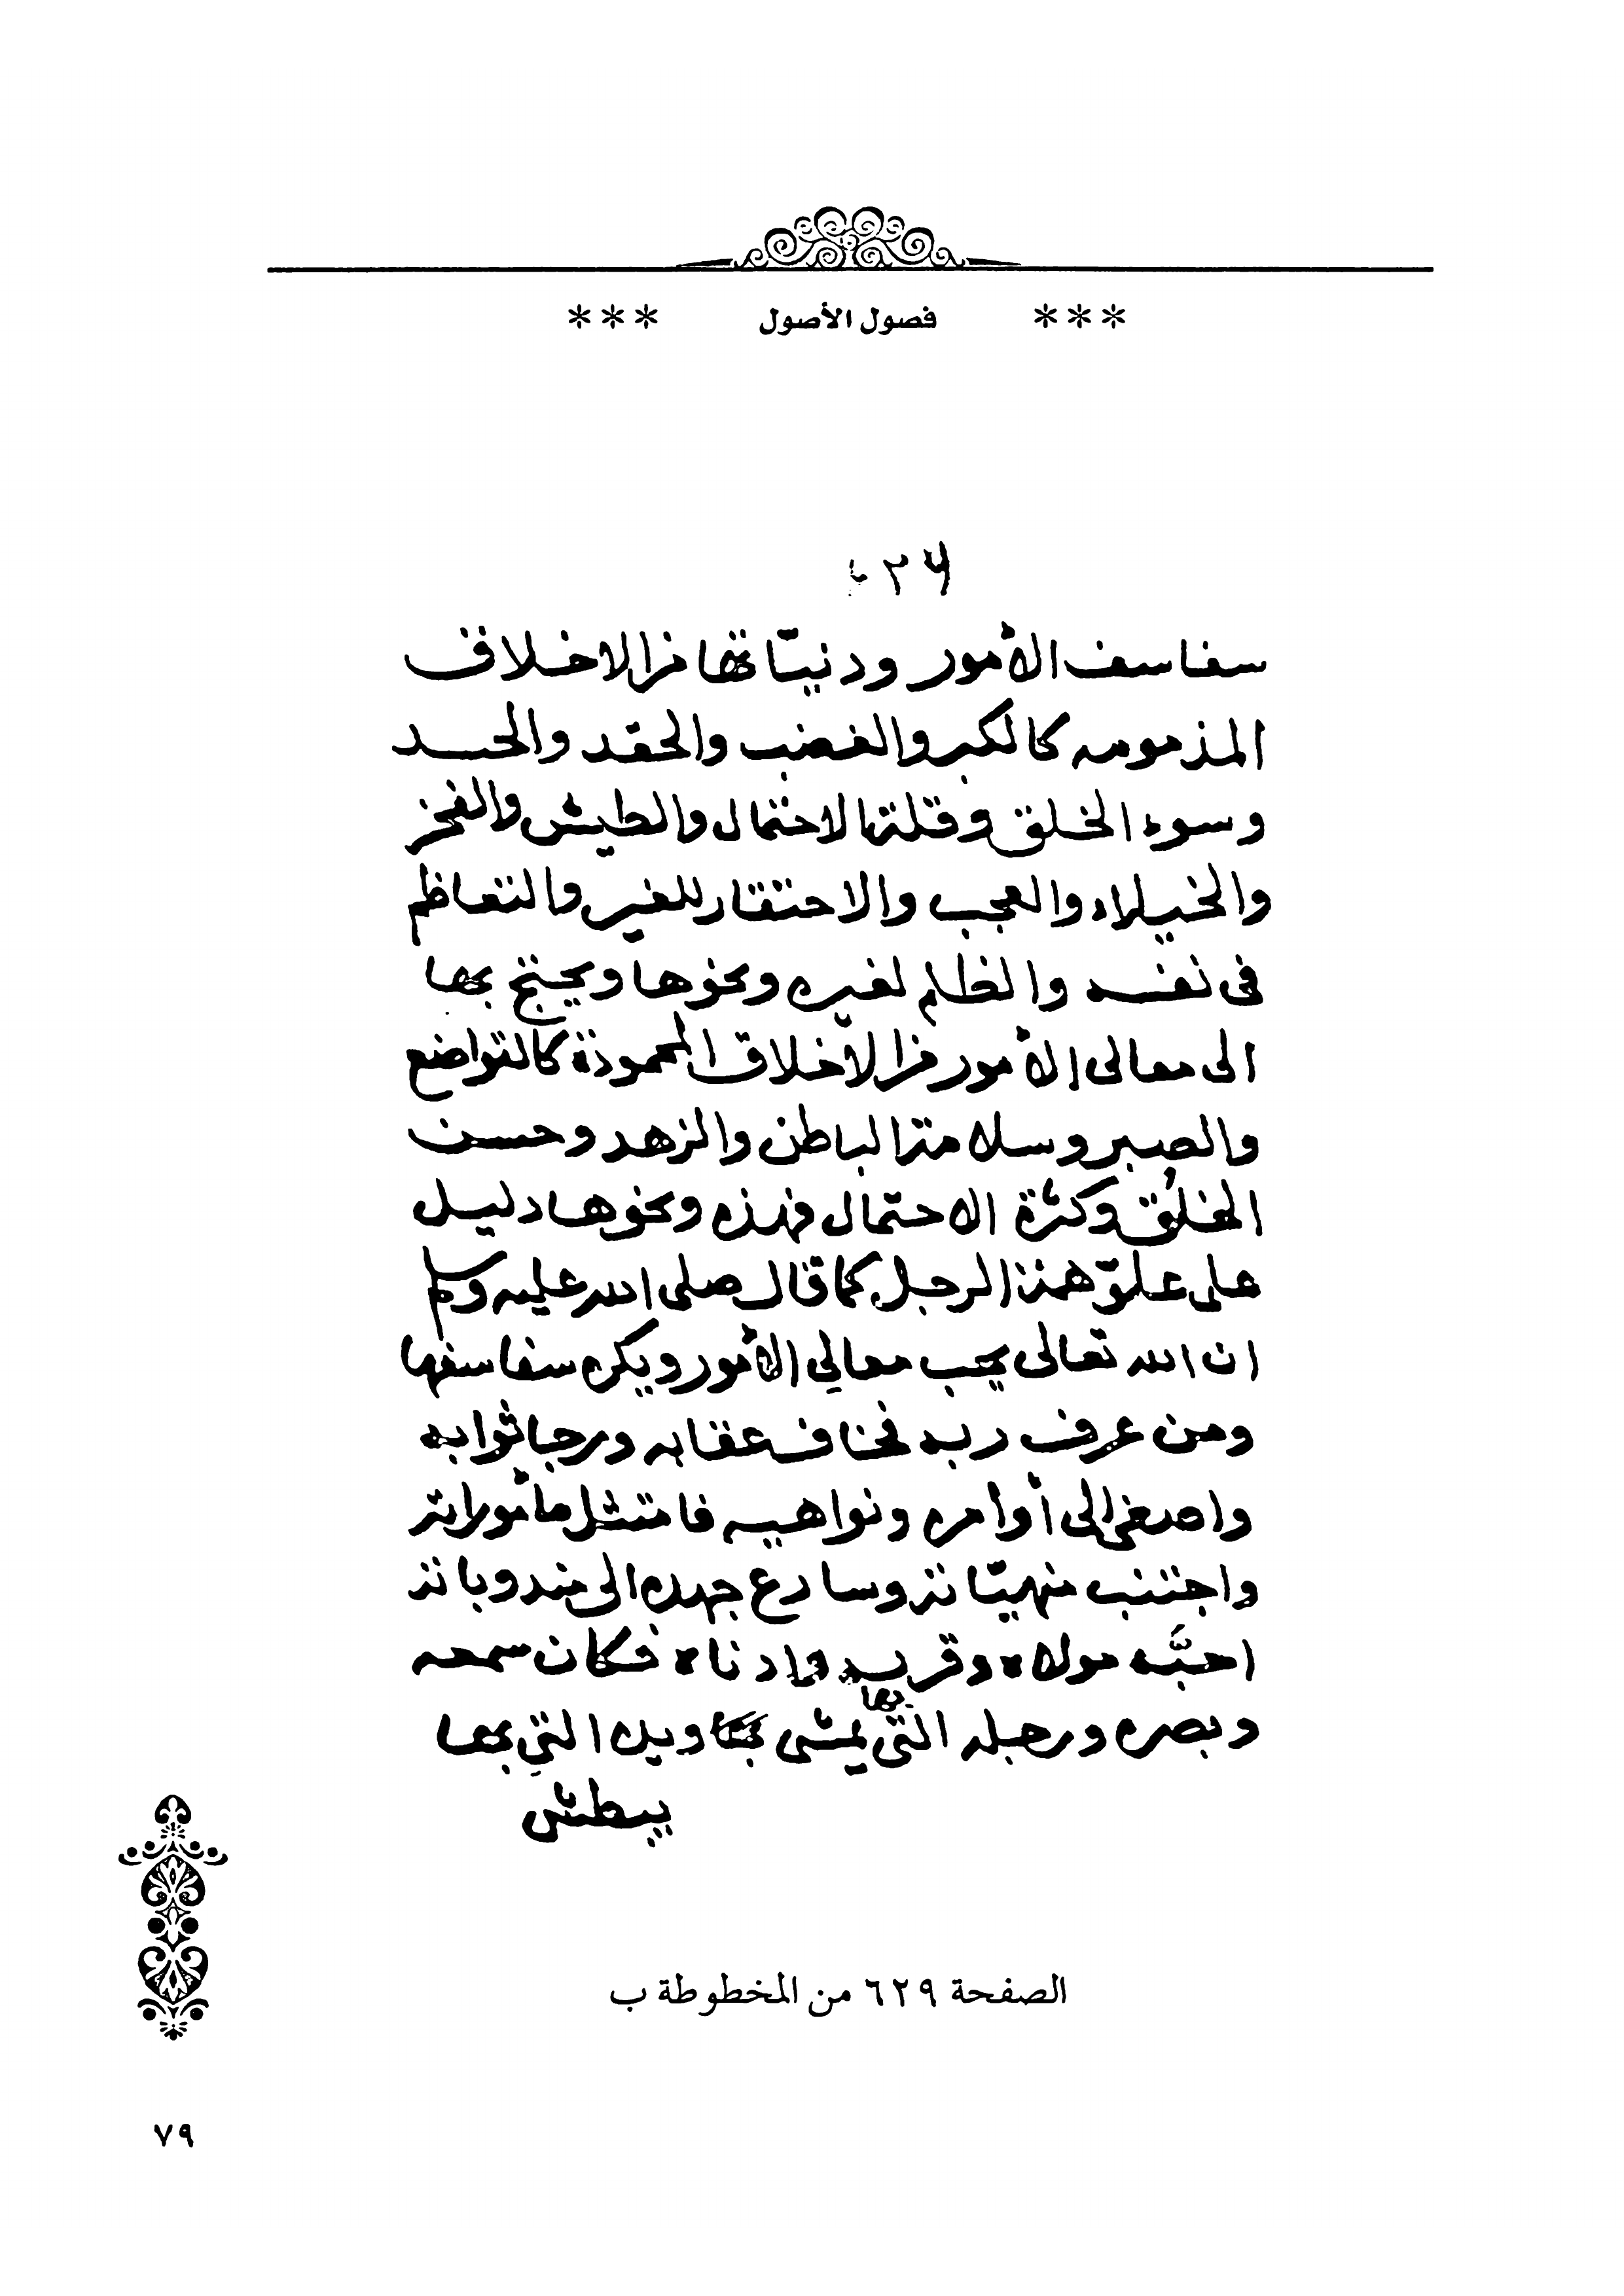 *** فصول الأصول ***
سفاسف الأمور ودنيّاتها من الاخلاق
المذمومه كالكبر والغضب والحقد والحسد
وسوء الخلق وقلة الاحتمال والطيش والفخر
والخيلاء والعجب والاحتقار للغير والتعاظم
في نفسه والظلم لغيره ونحوها ويجنح بها
الى معالى الأمور من الأخلاق المحمودة كالتواضع
والصبر وسلامة الباطن والزهد وحسن
الخلُق وكثرة الاحتمال فهذه ونحوها دليل
على علوّ همة الرجل كما قال صلى الله عليه وسلم
ان الله تعالى يحب معالي الأمور ويكره سفاسفها
ومن عرف ربه فخاف عقابه ورجا ثوابه
واصغى الى أوامره ونواهيه فامتثل مأموراته
واجتنب منهيّاته وسارع جهده الى مندوباته
احبَّه مولاه وقربه وادناه فكان سمعه
وبصره ورجله التي يمشى بها ويده التي بها
يبطش
الصفحة ٦٢٩ من المخطوطة ب
٧٩